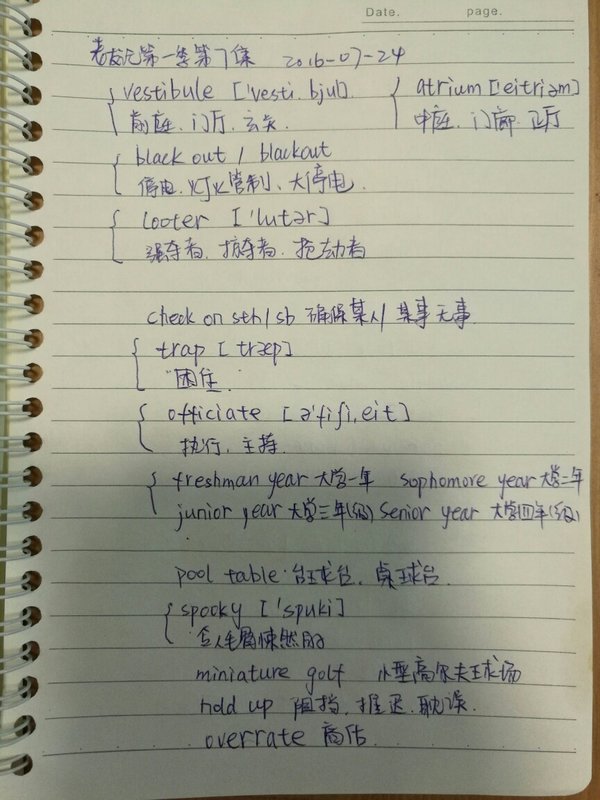 Date. page.
老友记第一季第7集 2016-07-24
vestibule ['vesti.bjul] atrium ['eitriəm]
前庭、门厅、玄关 中庭、门廊、正厅
black out / blackout
停电、灯火管制、大停电
looter ['lutər]
强夺者、掠夺者、抢劫者
check on sth/sb 确保某人/某事无事
trap [træp]
"困住"
officiate [ə'fiʃi,eit]
执行、主持
freshman year 大学一年 sophomore year 大学二年
junior year 大学三年(级) senior year 大学四年(级)
pool table 台球台、桌球台
spooky ['spuki]
令人毛骨悚然的
miniature golf 小型高尔夫球场
hold up 阻挡、推迟、耽误
overrate 高估